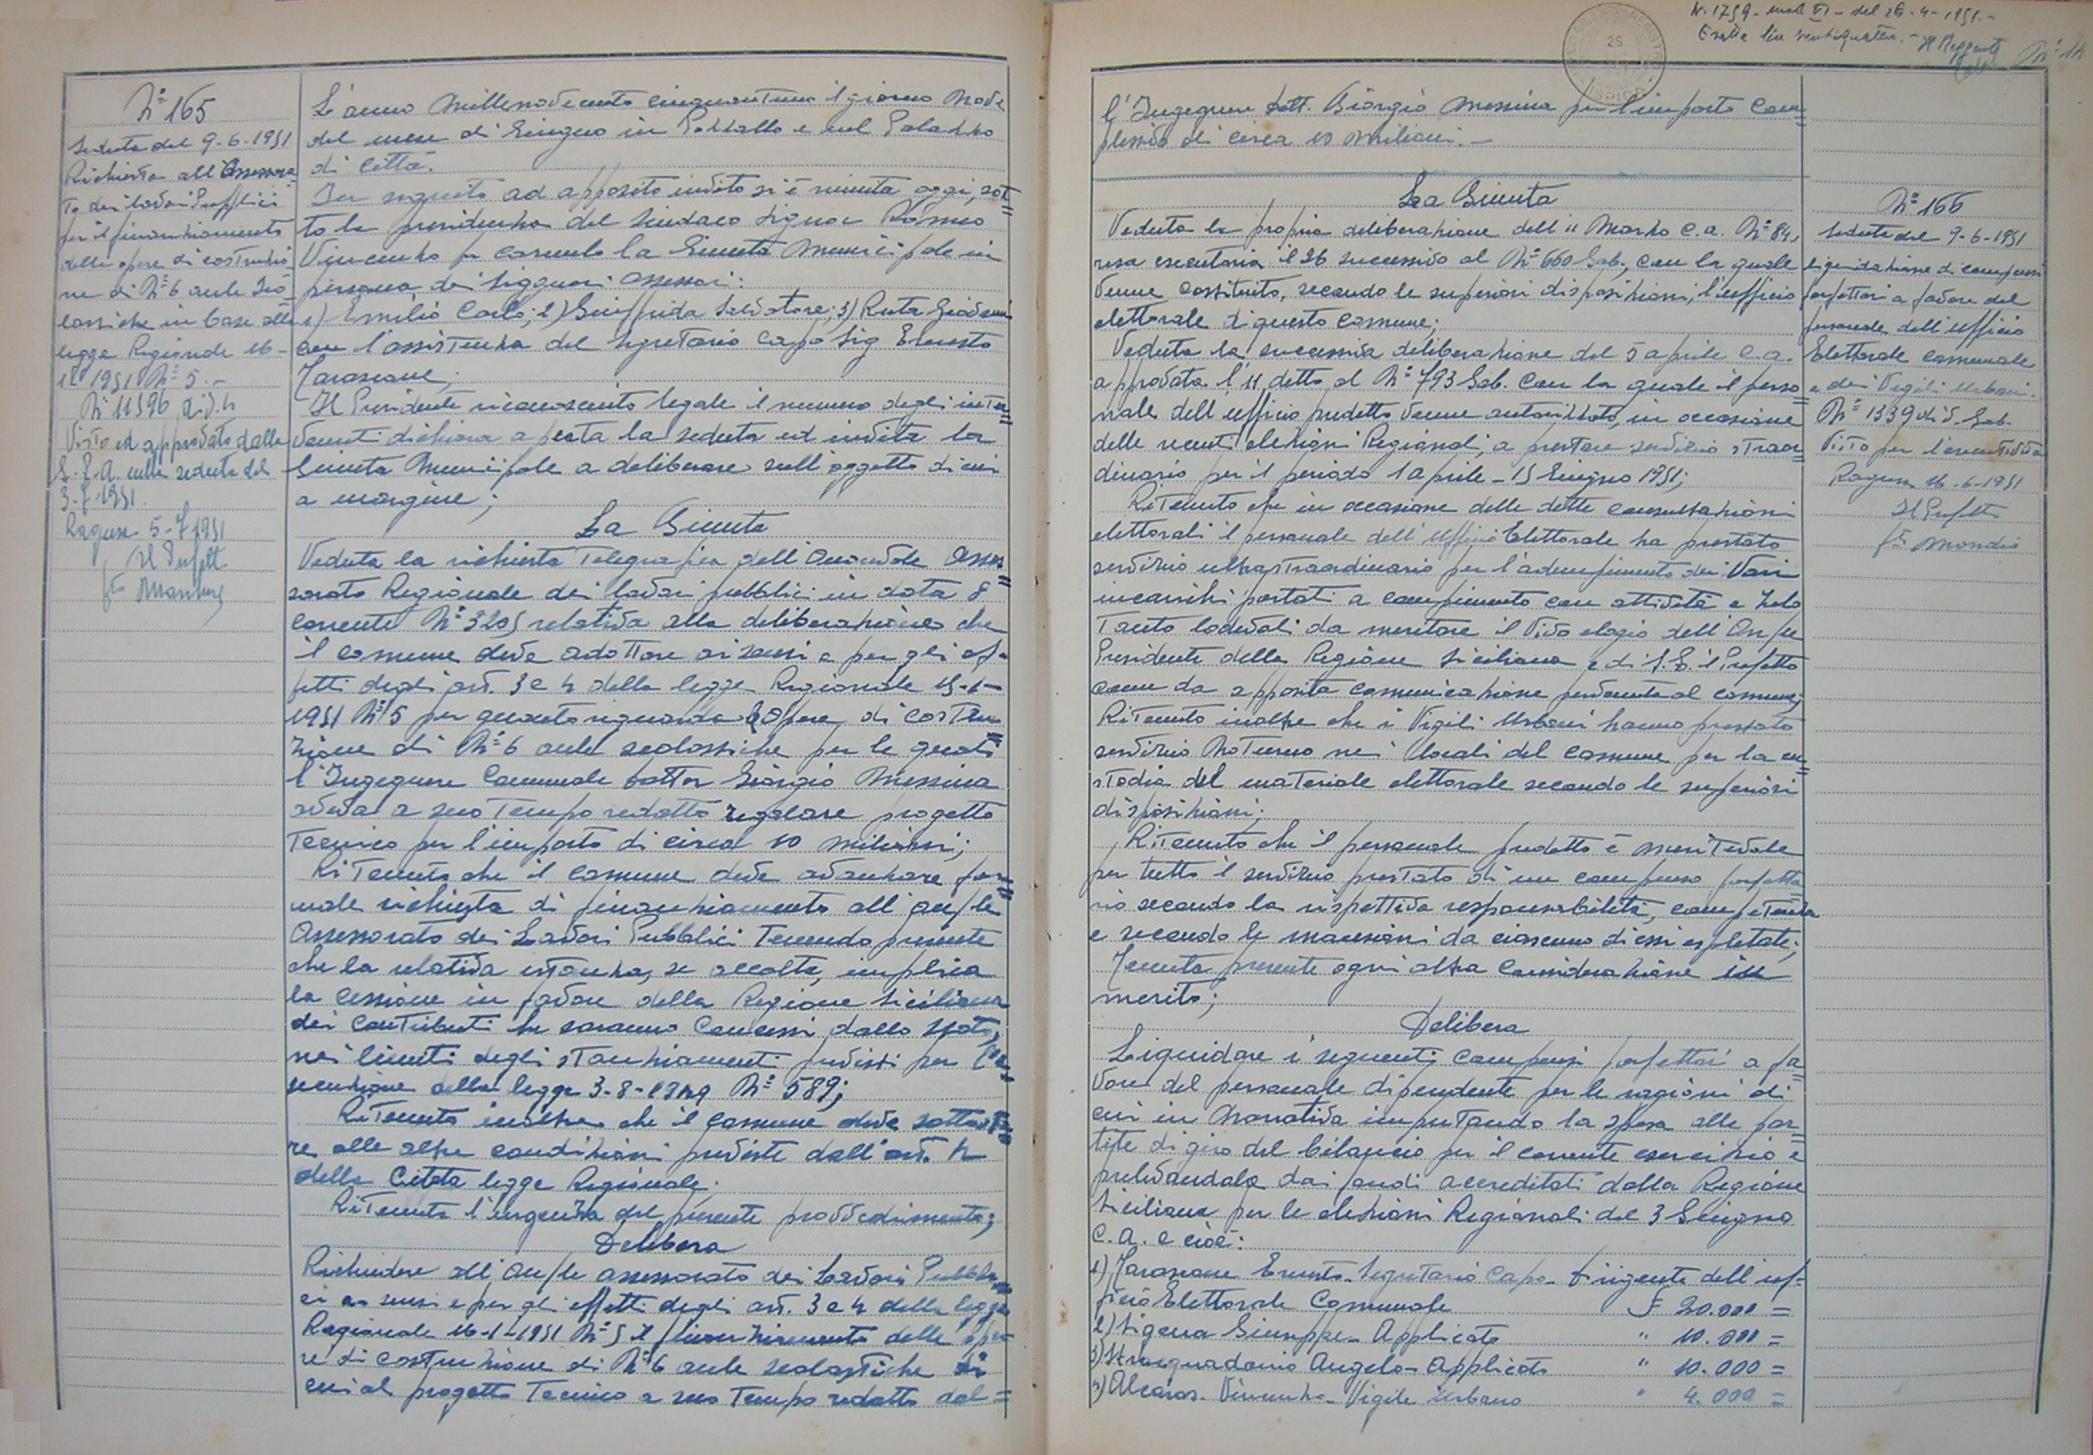 Nº 165
Seduta del 9-6-1951
Richiesta all'Assessora=
to dei Lavori Pubblici
per il finanziamento
delle opere di costruzio=
ne di Nº 6 aule sco
lastiche in base alla
legge Regionale 16-
1º 1951 Nº 5.-
Nº 11596 div. 4
Visto ed approvato dalla
G.P.A. nella seduta del
3-7-1951.
Ragusa 5-7-1951
Il Prefetto
fto
L'anno Millenovecento cinquantuno il giorno Nove
del mese di Giugno in Pozzallo e nel Palazzo
di Città.
In seguito ad apposito invito si è riunita, oggi, sot=
to la presidenza del Sindaco Signor Romeo
Vincenzo fu Carmelo la Giunta Municipale in
persona dei Signori Assessori:
1) Emilio Carlo; 2) Giuffrida Salvatore; 3) Ruta Giovanni
con l'assistenza del Segretario Capo Sig. Ernesto
Tarascone;
Il Presidente riconosciuto legale il numero degli inter=
venuti dichiara aperta la seduta ed invita la
Giunta Municipale a deliberare sull'oggetto di cui
a margine;
La Giunta
Veduta la richiesta telegrafica dell'Onorevole Asses=
sorato Regionale dei lavori pubblici in data 8
corrente Nº 3205 relativa alla deliberazione che
il comune deve adottare ai sensi e per gli ef=
fetti degli art. 3 e 4 della legge Regionale 15-1-
1951 Nº 5 per quanto riguarda le opere di costru=
zione di Nº 6 aule scolastiche per le quali
l'Ingegnere Comunale Dottor Giorgio Messina
aveva a suo tempo redatto regolare progetto
tecnico per l'importo di circa 10 milioni;
Ritenuto che il comune deve avanzare for=
male richiesta di finanziamento all'On/le
Assessorato dei Lavori Pubblici tenendo presente
che la relativa istanza, se accolta, implica
la cessione in favore della Regione Siciliana
dei contributi che saranno concessi dallo Stato,
nei limiti degli stanziamenti previsti per l'e=
secuzione della legge 3-8-1949 Nº 589;
Ritenuto inoltre che il comune deve sottosta=
re alle altre condizioni previste dall'art. 4
della citata legge Regionale.
Ritenuta l'urgenza del presente provvedimento;
Delibera
Richiedere all'On/le Assessorato dei Lavori Pubbli=
ci ai sensi e per gli effetti degli art. 3 e 4 della legge
Regionale 16-1-1951 Nº 5 il finanziamento delle ope=
re di costruzione di Nº 6 aule scolastiche di
cui al progetto tecnico a suo tempo redatto dal=
N. 1759 - mod VI - del 26-4-1951.-
Esatte lire ventiquattro.- Il Reggente
Nº 14
26
l'Ingegnere Dott. Giorgio Messina per l'importo com=
plessivo di circa 10 milioni.-
La Giunta
Veduta la propria deliberazione dell'11 Marzo c.a. Nº 84,
resa esecutoria il 26 successivo al Nº 660 Gab., con la quale
venne costituito, secondo le superiori disposizioni, l'ufficio
elettorale di questo comune;
Veduta la successiva deliberazione del 5 aprile c.a.
approvata l'11 detto al Nº 793 Gab. con la quale il perso=
nale dell'ufficio predetto venne autorizzato, in occasione
delle recenti elezioni Regionali, a prestare servizio straor=
dinario per il periodo 1 aprile - 15 Giugno 1951;
Ritenuto che in occasione delle dette consultazioni
elettorali il personale dell'Ufficio Elettorale ha prestato
servizio ultrastraordinario per l'adempimento dei vari
incarichi portati a compimento con attività e zelo
tanto lodevoli da meritare il vivo elogio dell'On/le
Presidente della Regione Siciliana e di S.E. il Prefetto
come da apposita comunicazione pervenuta al comune;
Ritenuto inoltre che i Vigili Urbani hanno prestato
servizio notturno nei locali del comune per la cu=
stodia del materiale elettorale secondo le superiori
disposizioni;
Ritenuto che il personale predetto è meritevole
per tutto il servizio prestato di un compenso forfetta
rio secondo la rispettiva responsabilità, competenza
e secondo le mansioni da ciascuno di essi espletate;
Tenuta presente ogni altra considerazione in
merito;
Delibera
Liquidare i seguenti compensi forfettari a fa=
vore del personale dipendente per le ragioni di
cui in narrativa imputando la spesa alle par=
tite di giro del bilancio per il corrente esercizio e
prelevandola dai fondi accreditati dalla Regione
Siciliana per le elezioni Regionali del 3 Giugno
c.a. e cioè:
1) Tarascone Ernesto - Segretario Capo - Dirigente dell'uf=
ficio Elettorale Comunale £ 20.000 =
2) Sigona Giuseppe - Applicato " 10.000 =
3) Stracquadanio Angelo - Applicato " 10.000 =
Vincenzo - Vigile Urbano " 4.000 =
Nº 166
Seduta del 9-6-1951
Liquidazione di compensi
forfettari a favore del
personale dell'ufficio
Elettorale comunale
e dei Vigili Urbani.
Nº 1339 div. Gab.
Visto per l'esecutività
Ragusa 16-6-1951
Il Prefetto
fto Mondio